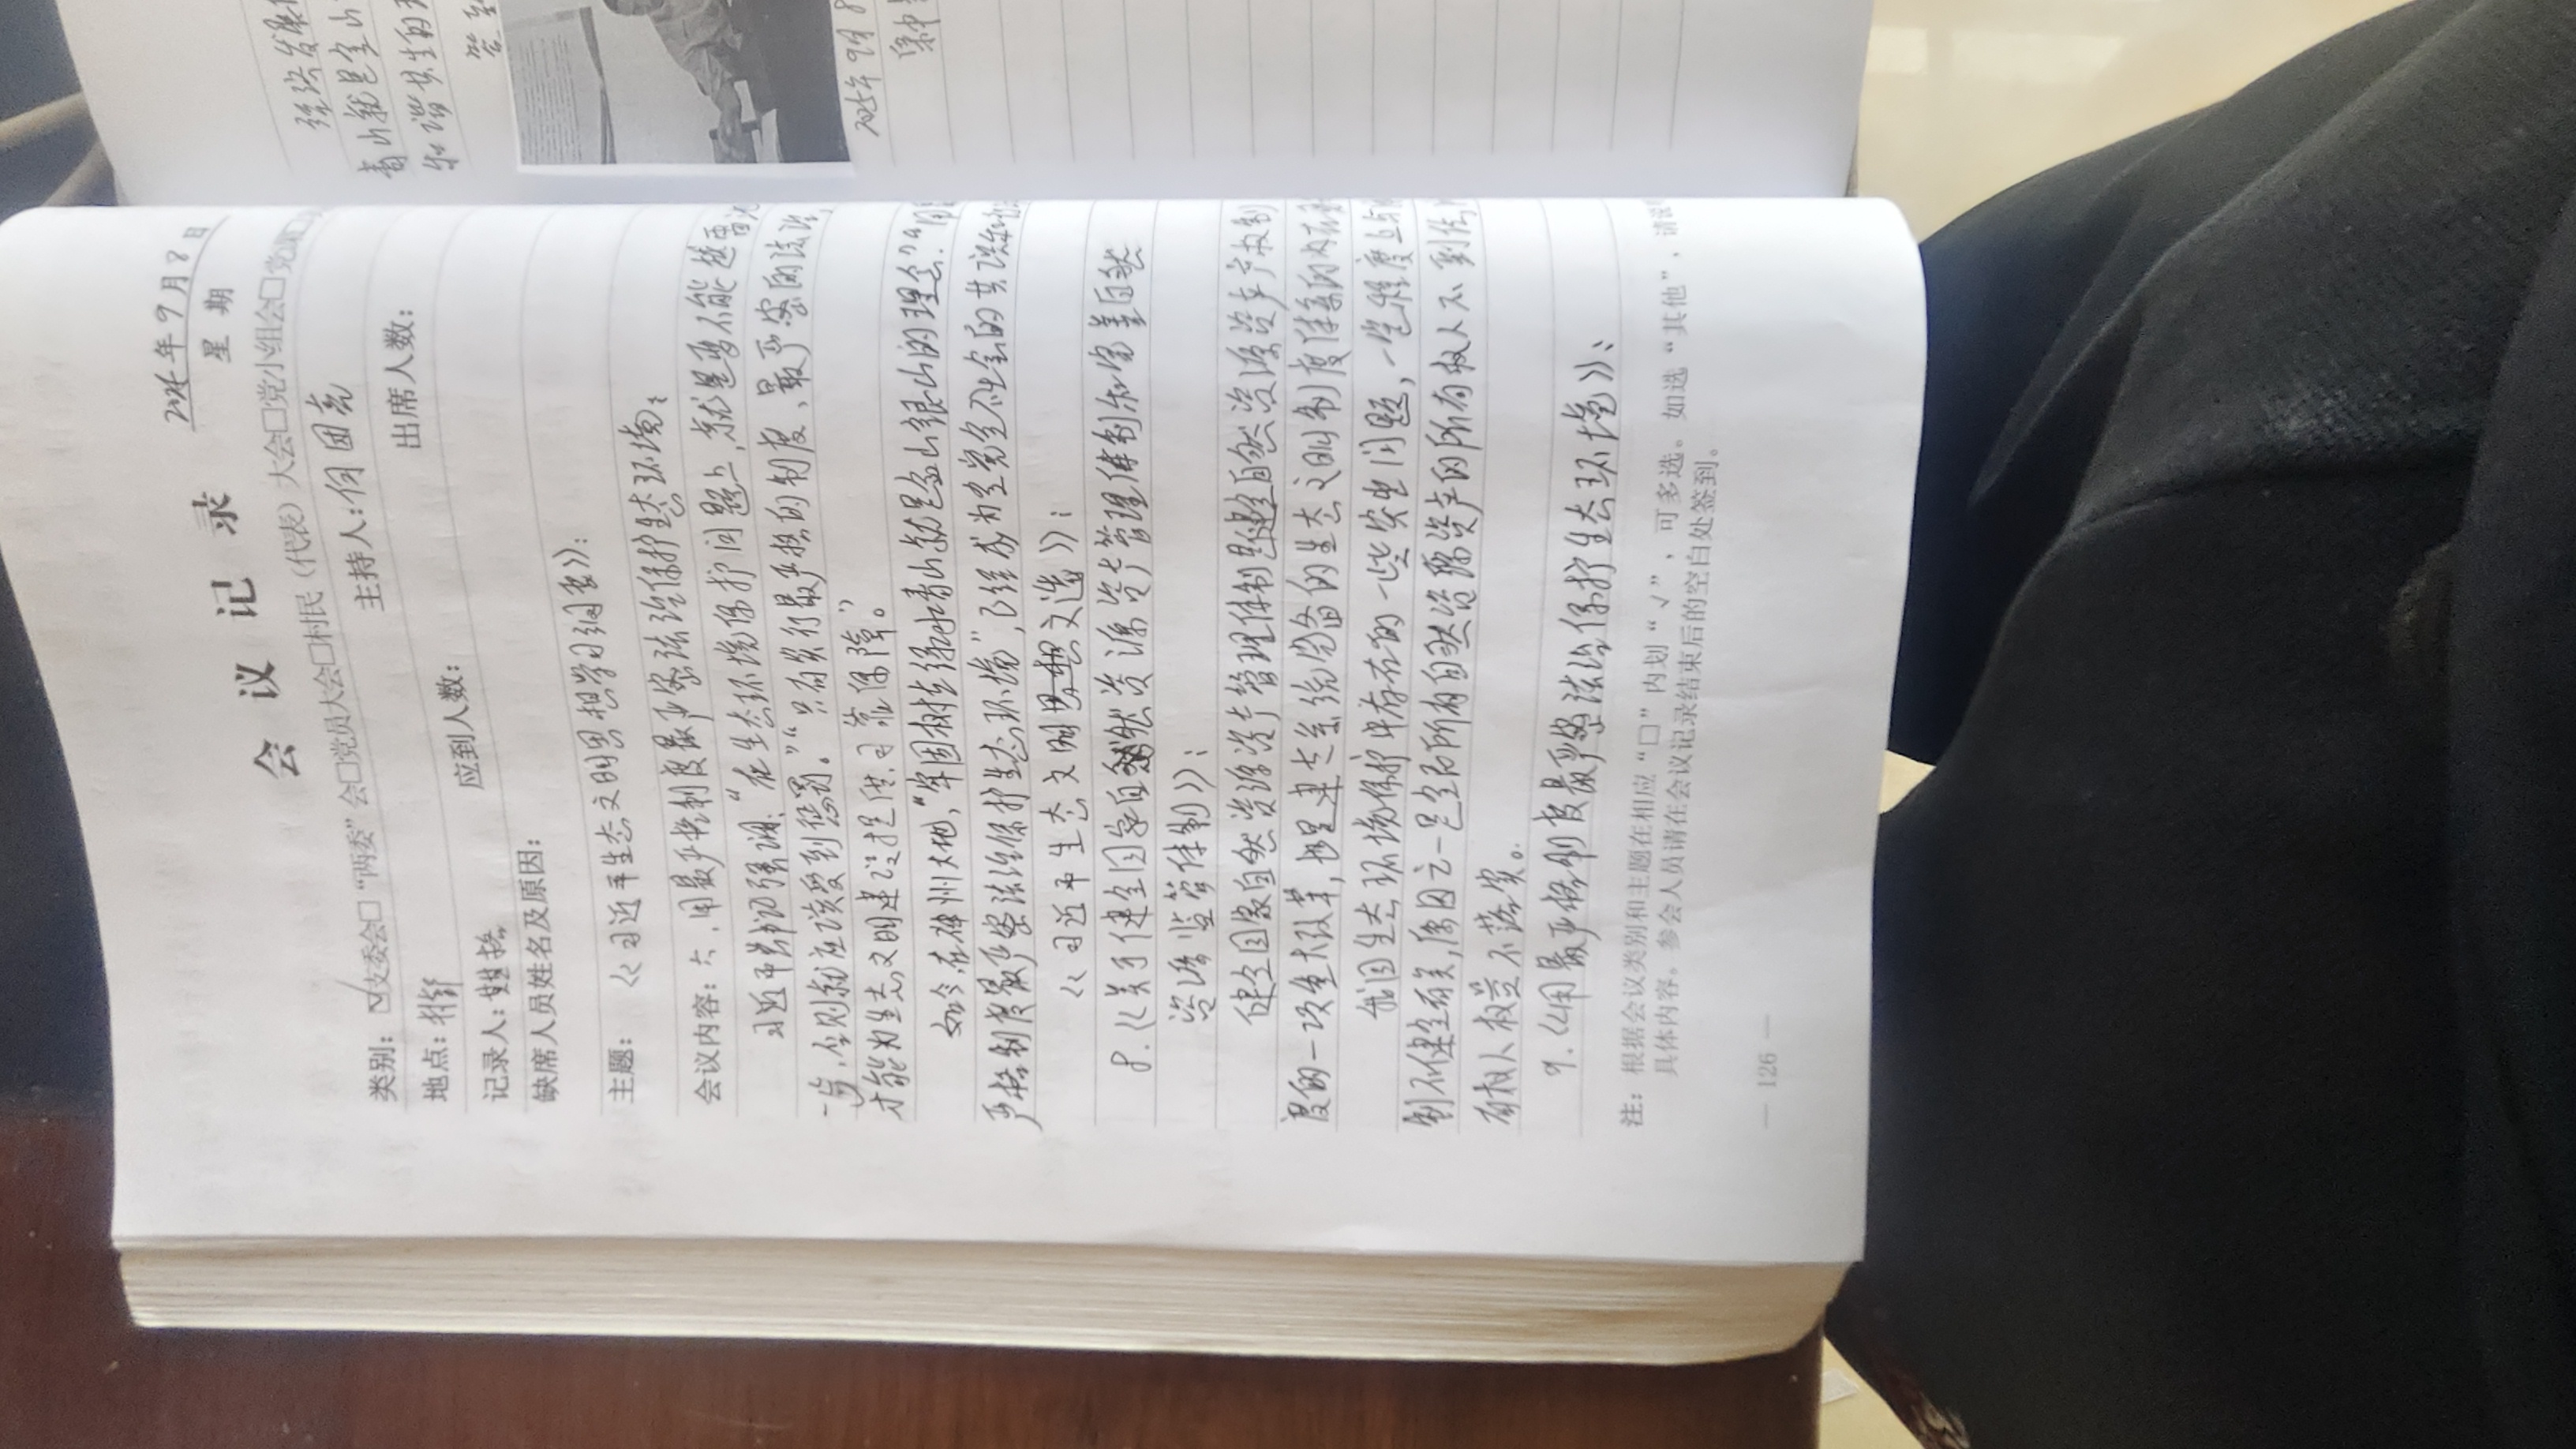 会议记录
2025年9月8日
星期
类别：☑支委会□“两委”会□党员大会□村民（代表）大会□党小组会□党
地点：村部
主持人：何团亮
记录人：
应到人数：
出席人数：
缺席人员姓名及原因：
主题：《习近平生态文明思想学习纲要》：
会议内容：六、用最严格制度最严密法治保护生态环境：
习近平书记强调：“在生态环境保护问题上，就是要不能越雷池
一步，否则就应该受到惩罚。”“只有实行最严格的制度、最严密的法治，
才能为生态文明建设提供可靠保障。”
如今，在神州大地，“牢固树立绿水青山就是金山银山的理念”“用最
严格制度最严密法治保护生态环境”，已经成为全党全社会的共识和
《习近平生态文明文选》：
8.《关于健全国家自然资源资产管理体制和完善自然
资源监管体制》：
健全国家自然资源资产管理体制是健全自然资源资产产权制
度的一项重大改革，也是建立系统完备的生态文明制度体系的内在
我国生态环境保护中存在的一些突出问题，一定程度上与
制不健全有关，原因之一是全民所有自然资源资产的所有权人不到位，
有权人权益不落实。
9.《用最严格制度最严密法治保护生态环境》：
注：根据会议类别和主题在相应“□”内划“√”，可多选。如选“其他”，请
具体内容。参会人员请在会议记录结束后的空白处签到。
— 126 —
经济发展
青山就是金山
和谐共生的
2025年9月8